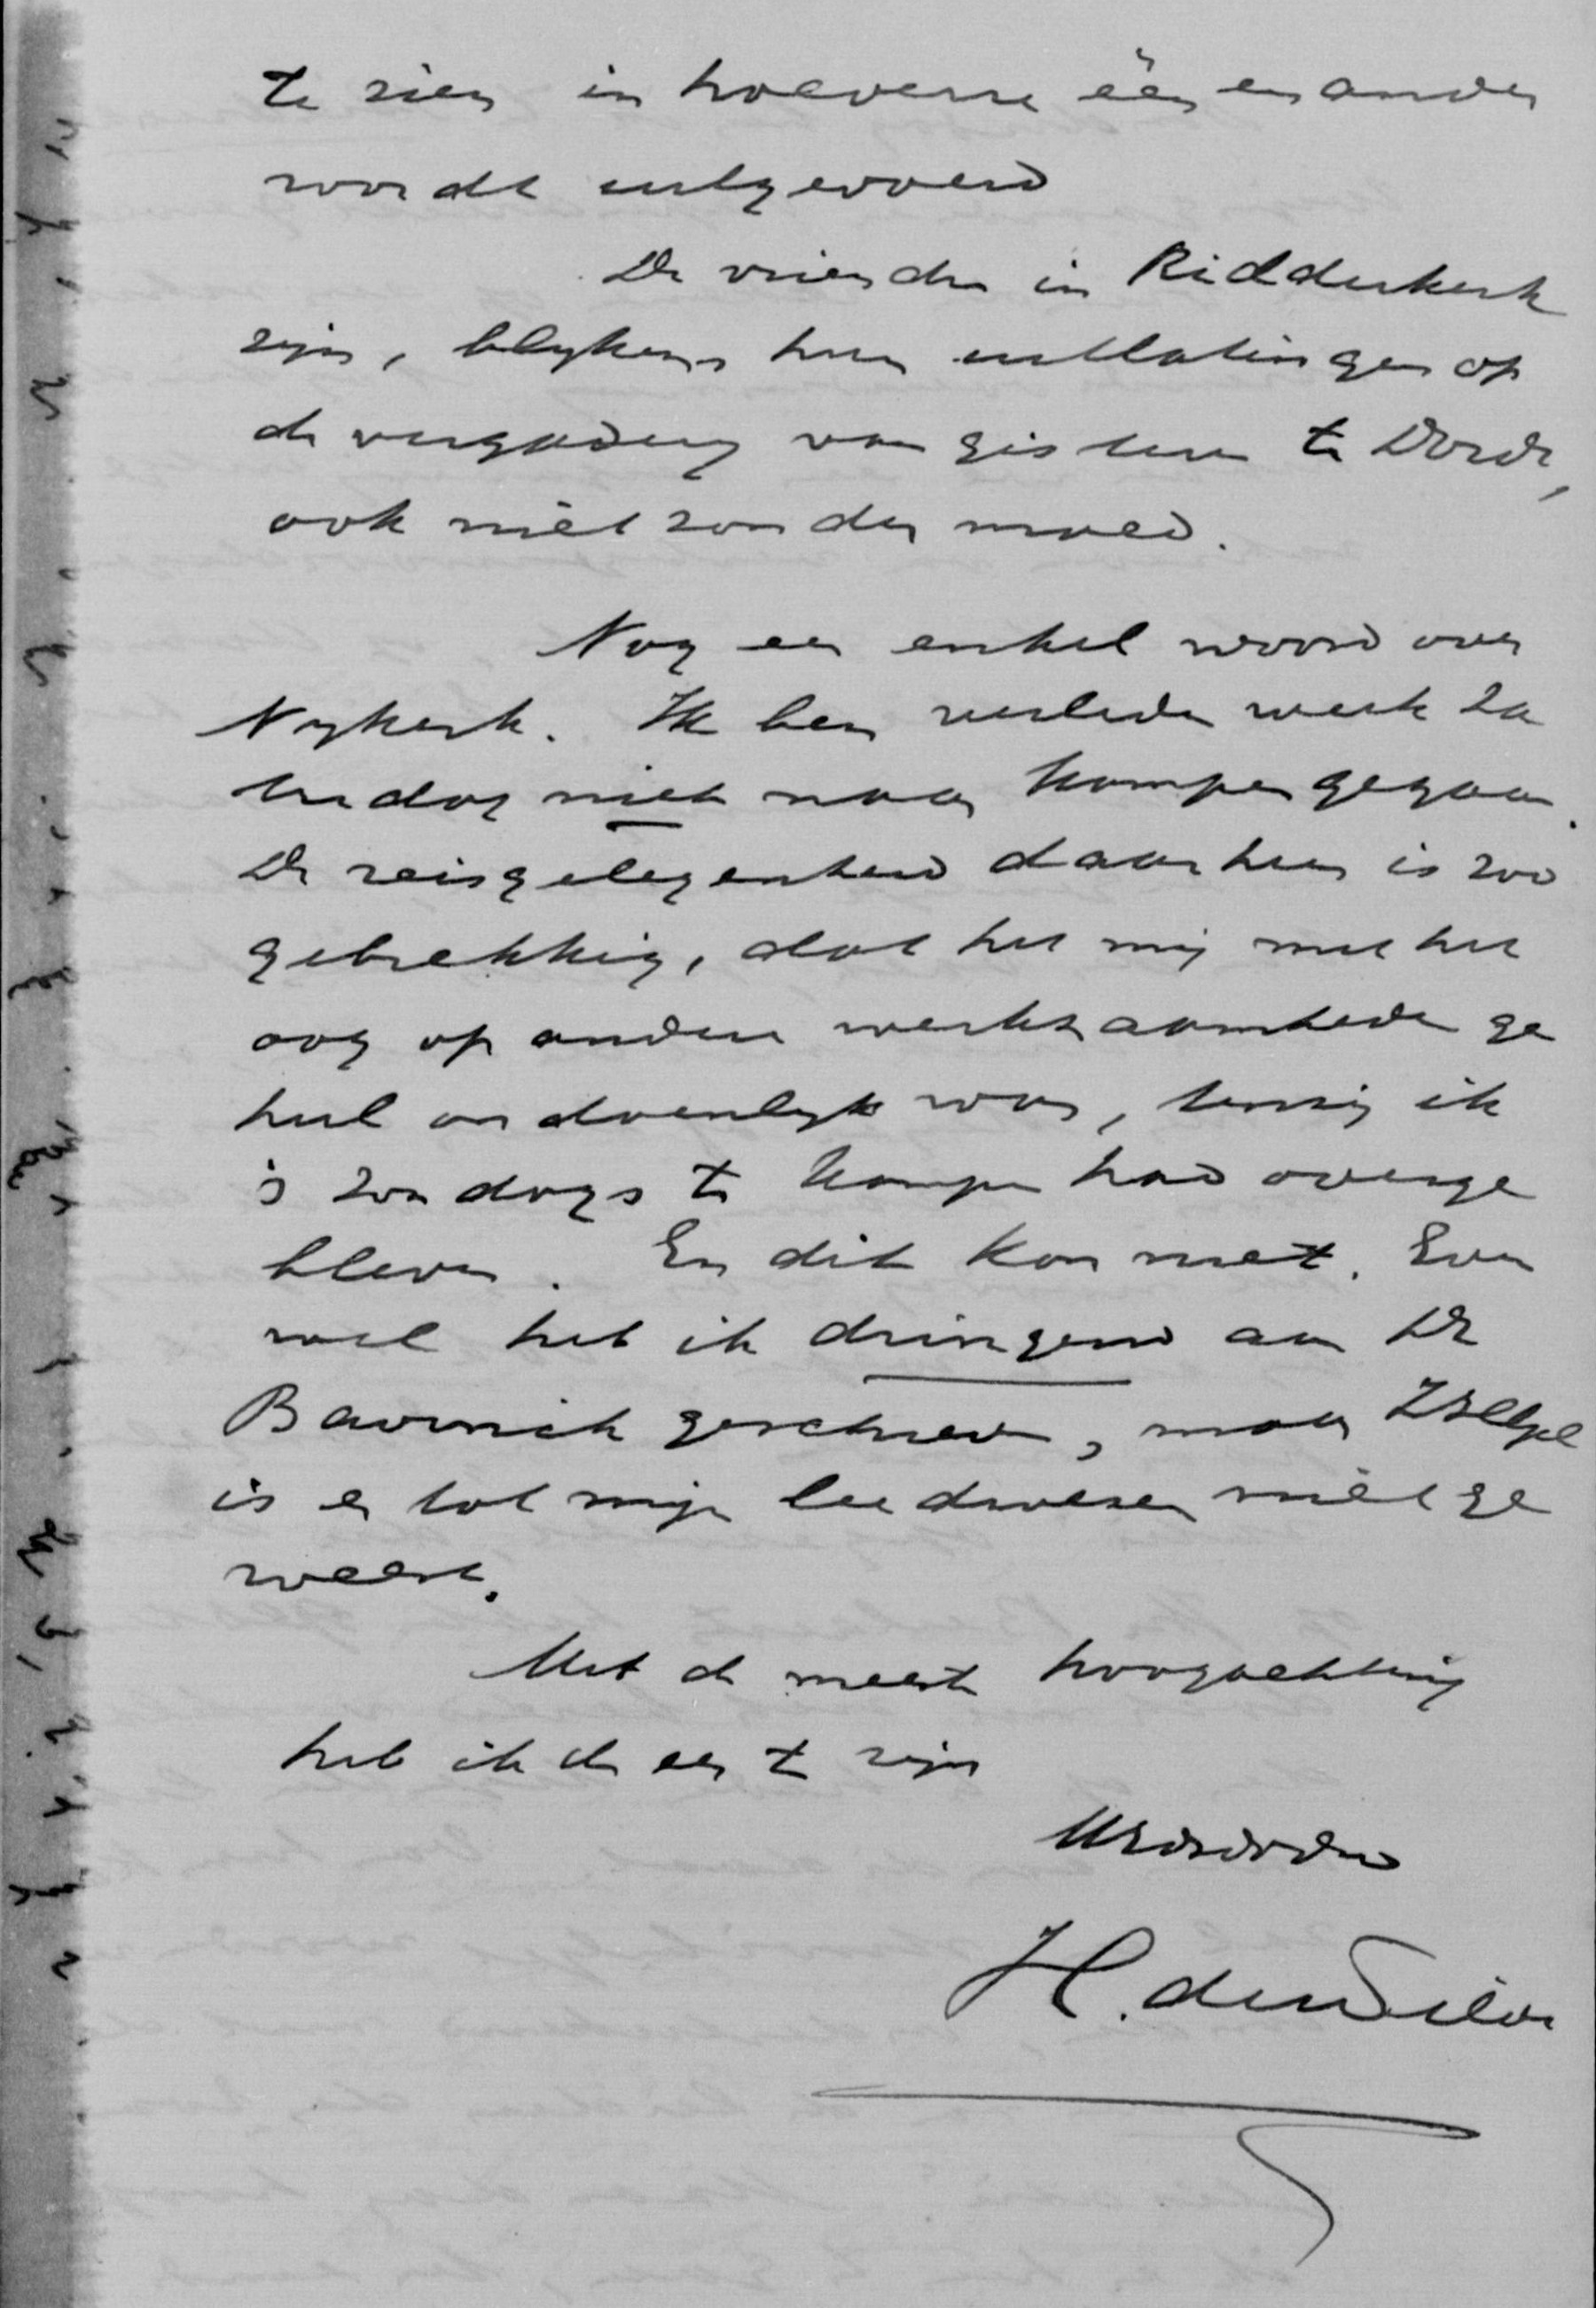 te zien in hoeverre één en ander
wordt uitgevoerd
De vrienden in Ridderkerk
zijn, blijkens hun uitlatingen op
de vergadering van gisteren te Dordt,
ook niet zonder moed.
Nog een enkel woord over
Nykerk. Ik ben verleden week Za
terdag niet naar Kampen gegaan.
De reisgelegenheid daarheen is zoo
gebrekkig, dat het mij met het
oog op andere werkzaamheden ge
heel ondoenlyk was, tenzij ik
's Zondags te Kampen had overge
bleven. En dit kon niet. Even
wel heb ik dringend aan Dr
Bavinck geschreven, maar ZHEGel
is er tot mijn leedwezen niet ge
weest.
Met de meeste hoogachting
heb ik de eer te zijn
UEd
H. den